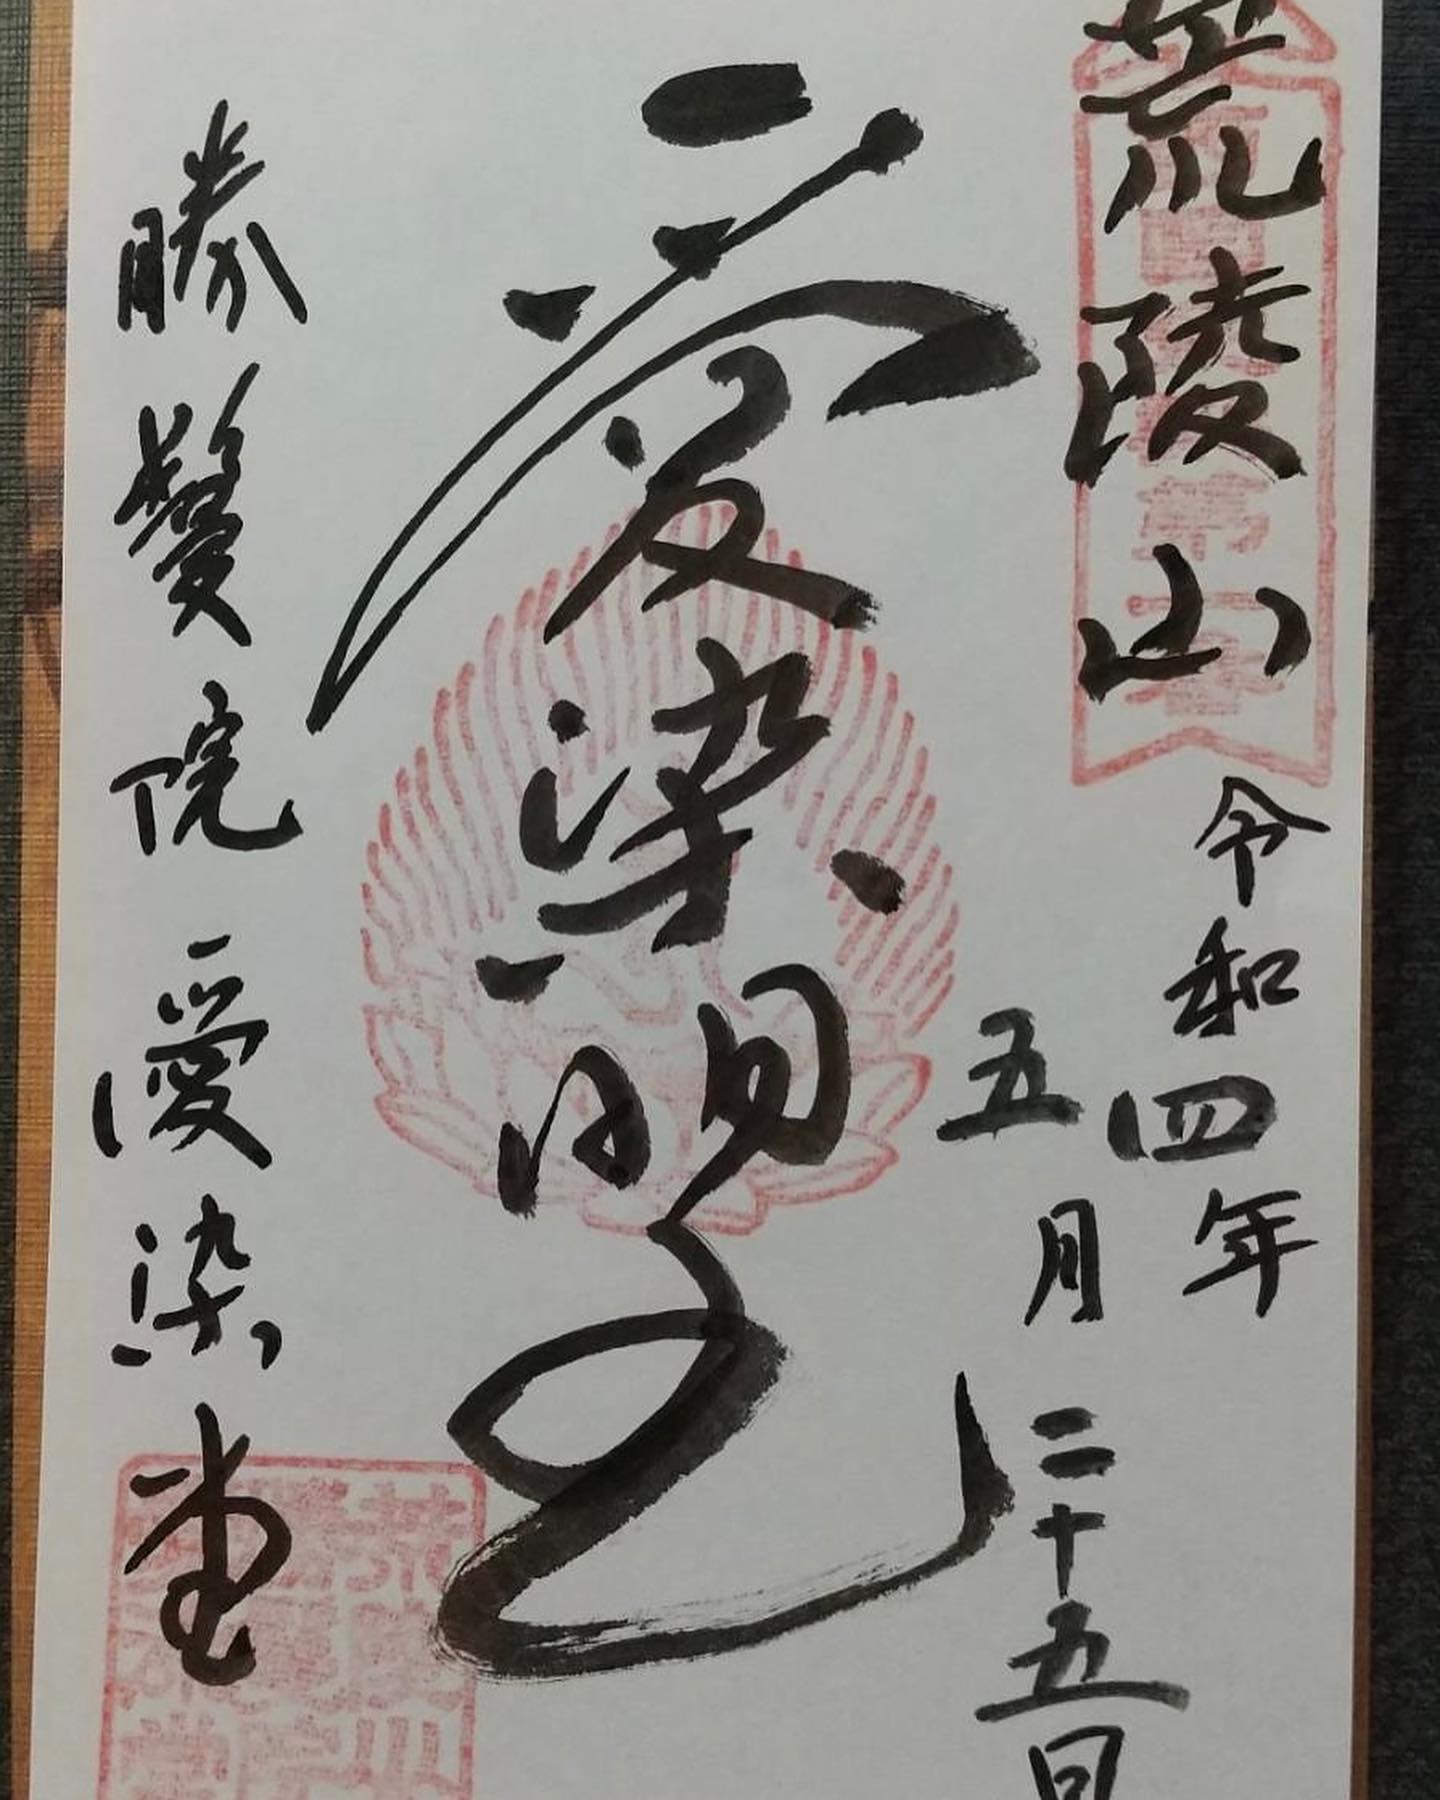 荒陵山
令和四年
五月二十五日
愛染明王
勝鬘院愛染堂